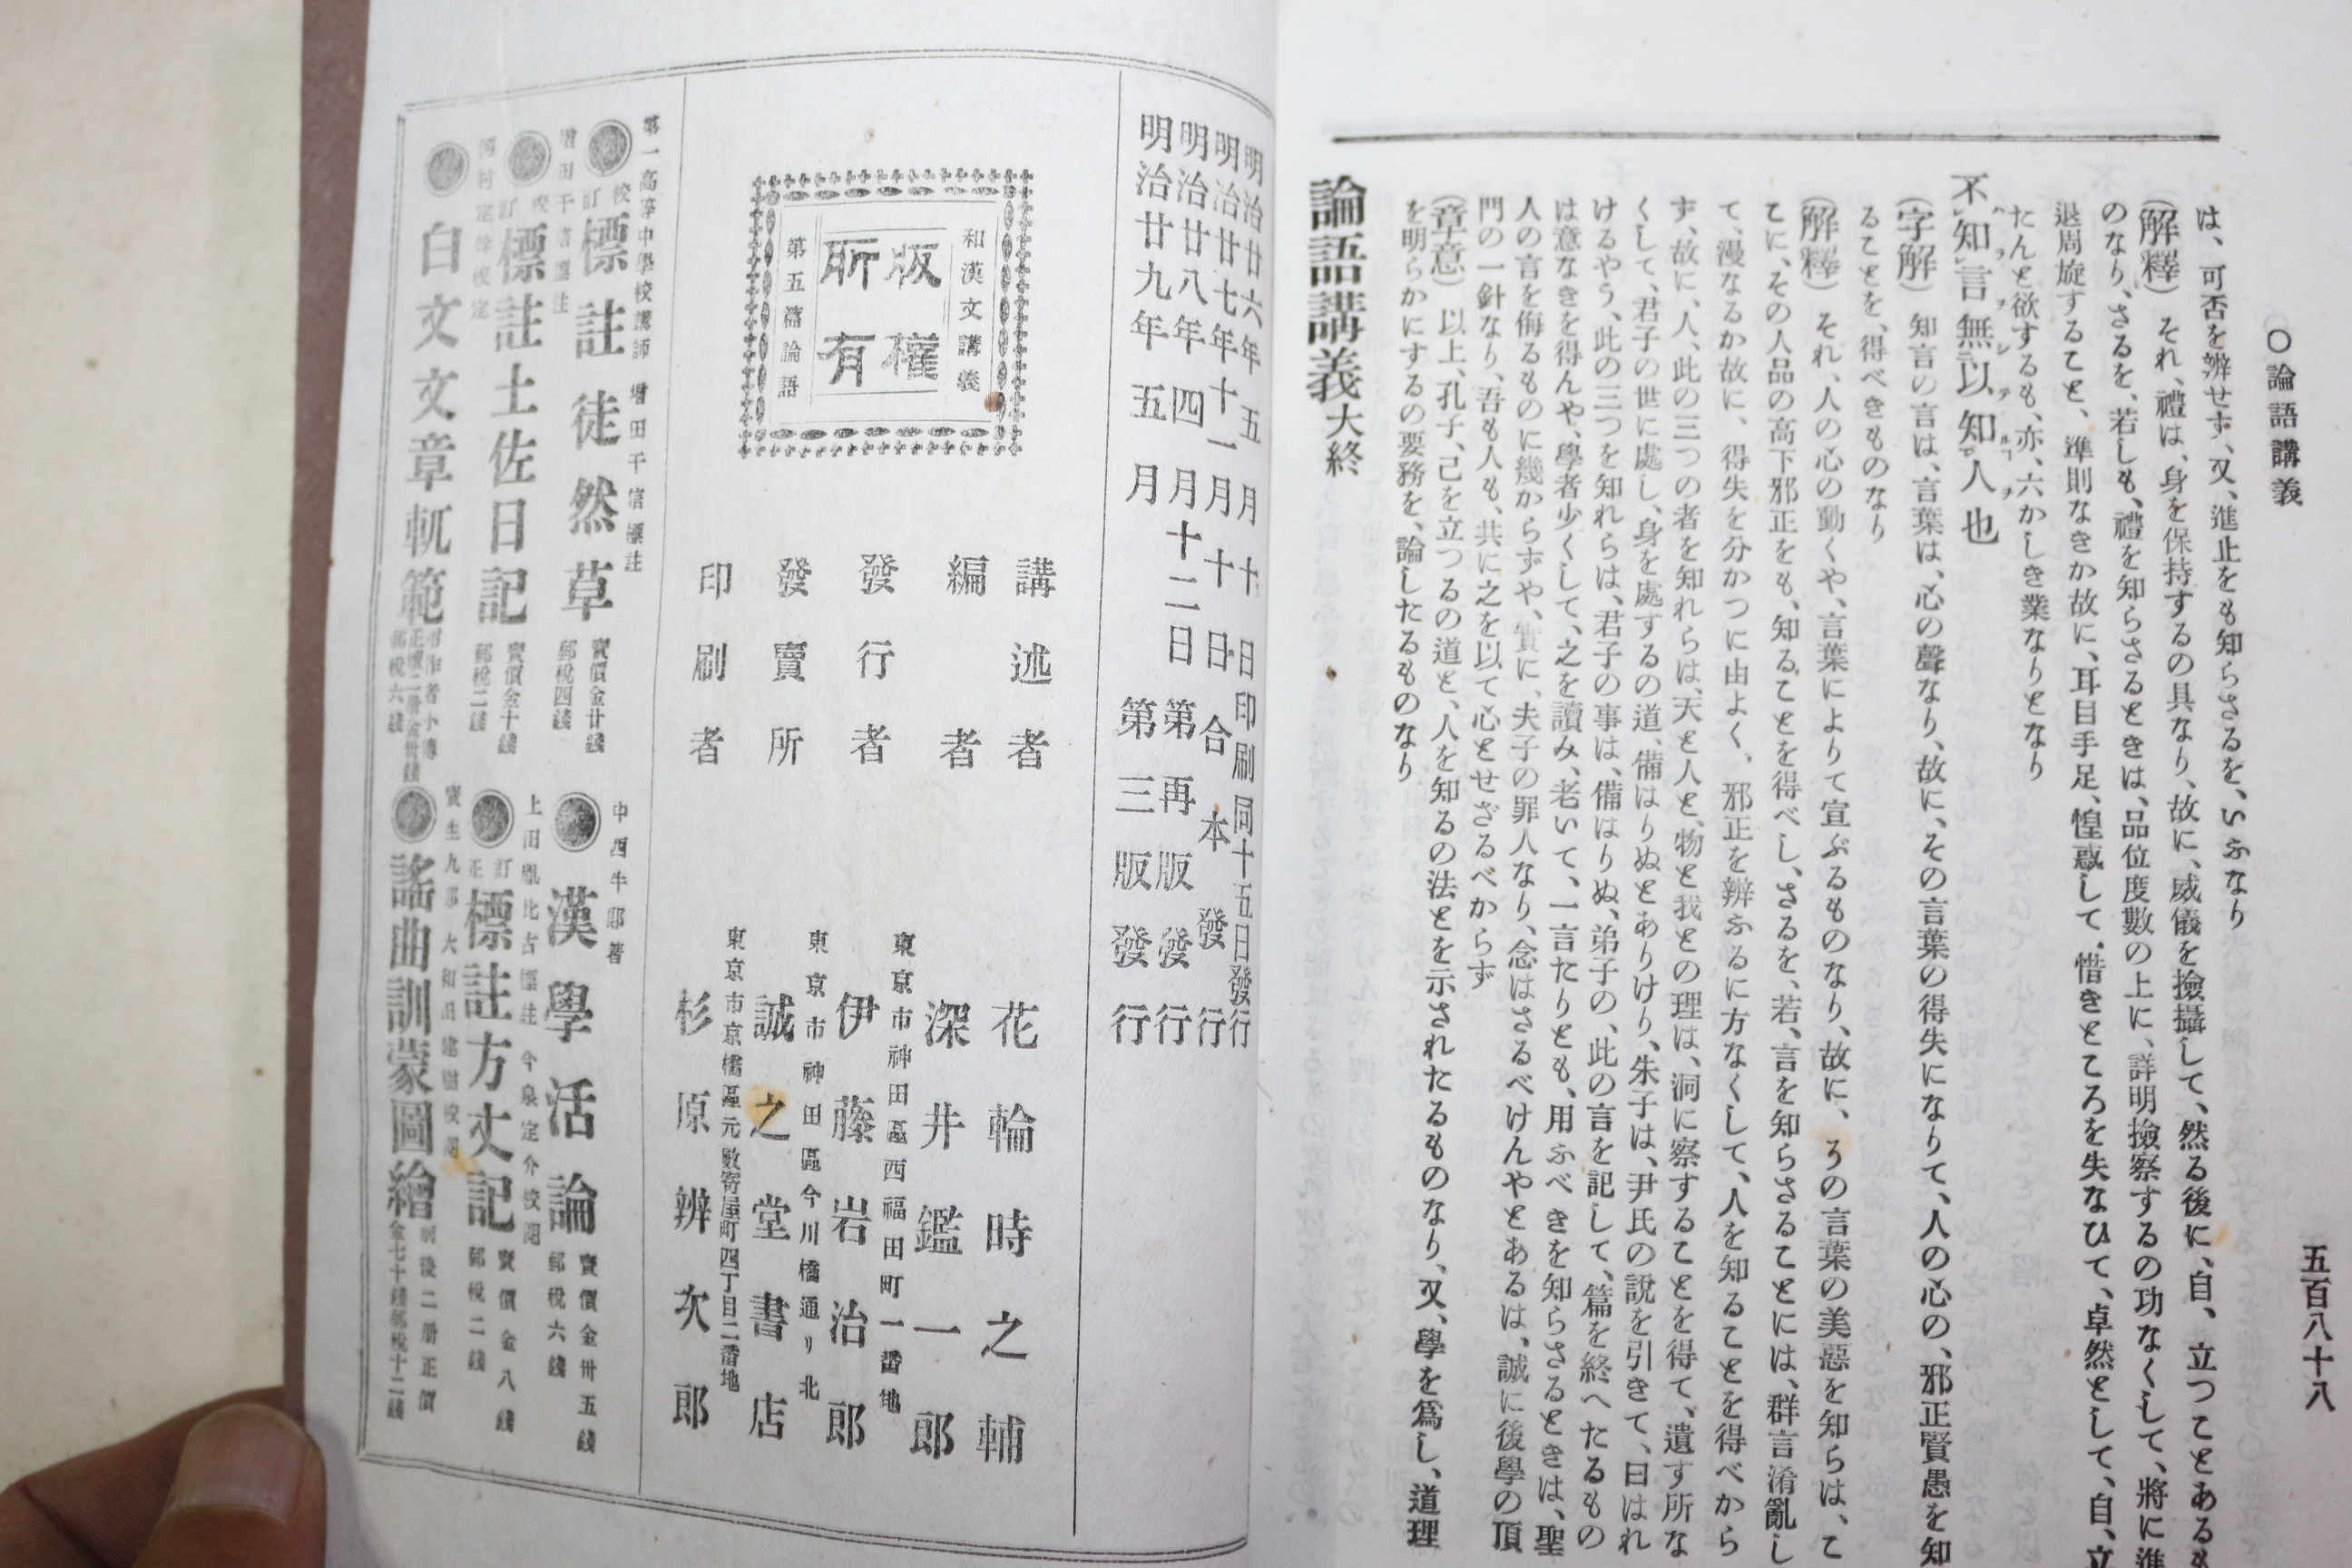 〇論語講義
五百八十八
は、可否を辨せず、又、進止をも知らさるを、いふなり
(解釋) それ、禮は、身を保持するの具なり、故に、威儀を撿攝して、然る後に、自、立つことあるも
のなり、さるを、若しも、禮を知らさるときは、品位度數の上に、詳明撿察するの功なくして、將に進
退周旋すること、準則なきか故に、耳目手足、惶惑して、惜きところを失なひて、卓然として、自、立
たんと欲するも、亦、六かしき業なりとなり
不知言無以知人也
(字解) 知言の言は、言葉は、心の聲なり、故に、その言葉の得失になりて、人の心の、邪正賢愚を知
ることを、得べきものなり
(解釋) それ、人の心の動くや、言葉によりて宣ぶるものなり、故に、その言葉の美惡を知らは、こ
こに、その人品の高下邪正をも、知ることを得べし、さるを、若、言を知らさることには、群言淆亂し
て、漫なるか故に、得失を分かつに由よく、邪正を辨ふるに方なくして、人を知ることを得べから
ず、故に、人、此の三つの者を知れらは、天と人と、物と我との理は、洞に察することを得て、遺す所な
くして、君子の世に處し、身を處するの道、備はりぬとありけり、朱子は、尹氏の說を引きて、曰はれ
けるやう、此の三つを知れらは、君子の事は、備はりぬ、弟子の、此の言を記して、篇を終へたるもの
は意なきを得んや、學者少くして、之を讀み、老いて、一言たりとも、用ふべきを知らさるときは、聖
人の言を侮るものに幾からずや、實に、夫子の罪人なり、念はさるべけんやとあるは、誠に後學の頂
門の一針なり、吾も人も、共に之を以て心とせざるべからず
(章意) 以上、孔子、己を立つるの道と、人を知るの法とを示されたるものなり、又、學を爲し、道理
を明らかにするの要務を、論したるものなり
論語講義大終
明治廿六年五月十日印刷同十五日發行
明治廿七年十一月十日合本發行
明治廿八年四月十二日第再版發行
明治廿九年五月第三版發行
和漢文講義
版權
所有
第五篇論語
講述者 花輪時之輔
編者 深井鑑一郎
東京市神田區西福田町一番地
發行者 伊藤岩治郎
東京市神田區今川橋通り北
發賣所 誠之堂書店
東京市京橋區元數寄屋町四丁目二番地
印刷者 杉原辨次郎
第一高等中學校講師 增田于信標註
校訂 標註徒然草 實價金廿錢 郵稅四錢
增田于信標注
校訂 標註土佐日記 實價金十錢 郵稅二錢
白文文章軌範 郵稅六錢
中西牛郎著
漢學活論 實價金卅五錢 郵稅六錢
上田胤比古標註 今泉定介校閱
訂正 標註方丈記 實價金八錢 郵稅二錢
寶生九郎 大和田建樹校閱
謠曲訓蒙圖繪 前後二册正價金七十錢郵稅十二錢